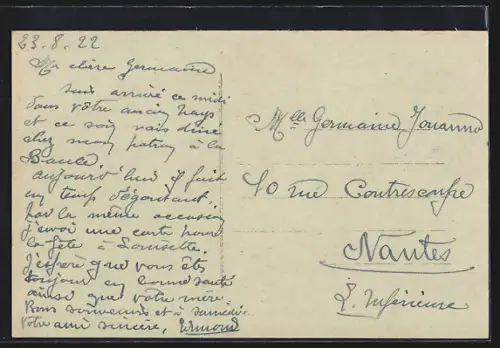 23.8.22
Ma chère Germaine
suis arrivé ce midi
dans vôtre ancien pays
et ce soir vais diner
chez mon patron à la
Baule
aujourd'hui il fait
un temps dégoutant.
par la même occasion
j'envoi une carte pour
la fête à Louisette.
J'espère que vous êtes
toujour en bonne santé
ainsi que votre mère.
Bons souvenirs et à samedi.
Votre ami sincère, Edmond
Mlle Germaine Jouanno
10 rue Contrescarpe
Nantes
L. Inférieure